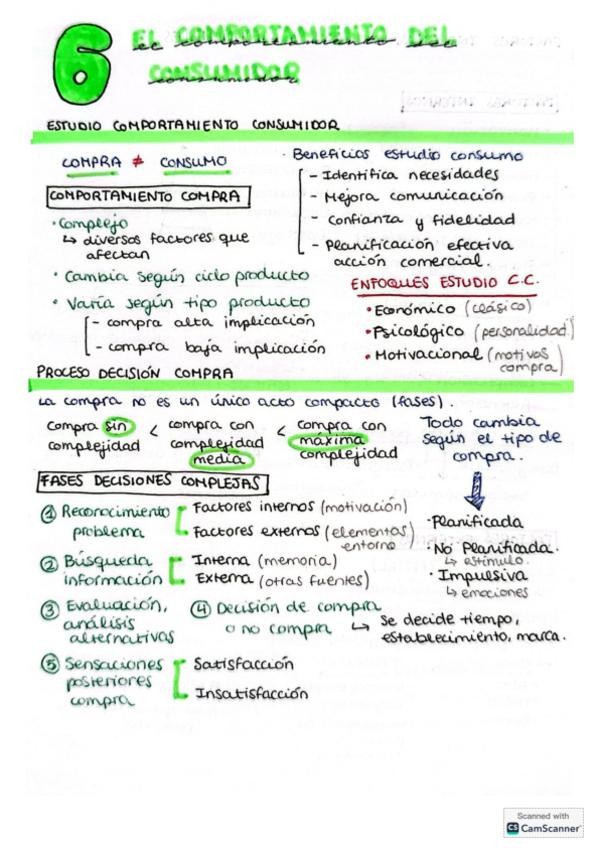 6
EL COMPORTAMIENTO DEL
CONSUMIDOR
ESTUDIO COMPORTAMIENTO CONSUMIDOR
COMPRA ≠ CONSUMO
COMPORTAMIENTO COMPRA
· Complejo
↳ diversos factores que
afectan
· Cambia según ciclo producto
· Varía según tipo producto
- compra alta implicación
- compra baja implicación
· Beneficios estudio consumo
- Identifica necesidades
- Mejora comunicación
- Confianza y fidelidad
- Planificación efectiva
acción comercial.
ENFOQUES ESTUDIO C.C.
· Económico (clásico)
· Psicológico (personalidad)
· Motivacional (motivos
compra)
PROCESO DECISIÓN COMPRA
La compra no es un único acto compacto (fases).
compra sin < compra con < compra con
complejidad complejidad máxima
media complejidad
Todo cambia
según el tipo de
compra.
· Planificada
· No Planificada.
↳ estímulo.
· Impulsiva
↳ emociones
FASES DECISIONES COMPLEJAS
① Reconocimiento
problema
Factores internos (motivación)
Factores externos (elementos
entorno)
② Búsqueda
información
Interna (memoria)
Externa (otras fuentes)
③ Evaluación,
análisis
alternativas
④ Decisión de compra
o no compra
↳ Se decide tiempo,
establecimiento, marca.
⑤ Sensaciones
posteriores
compra
Satisfacción
Insatisfacción
Scanned with
CS CamScanner